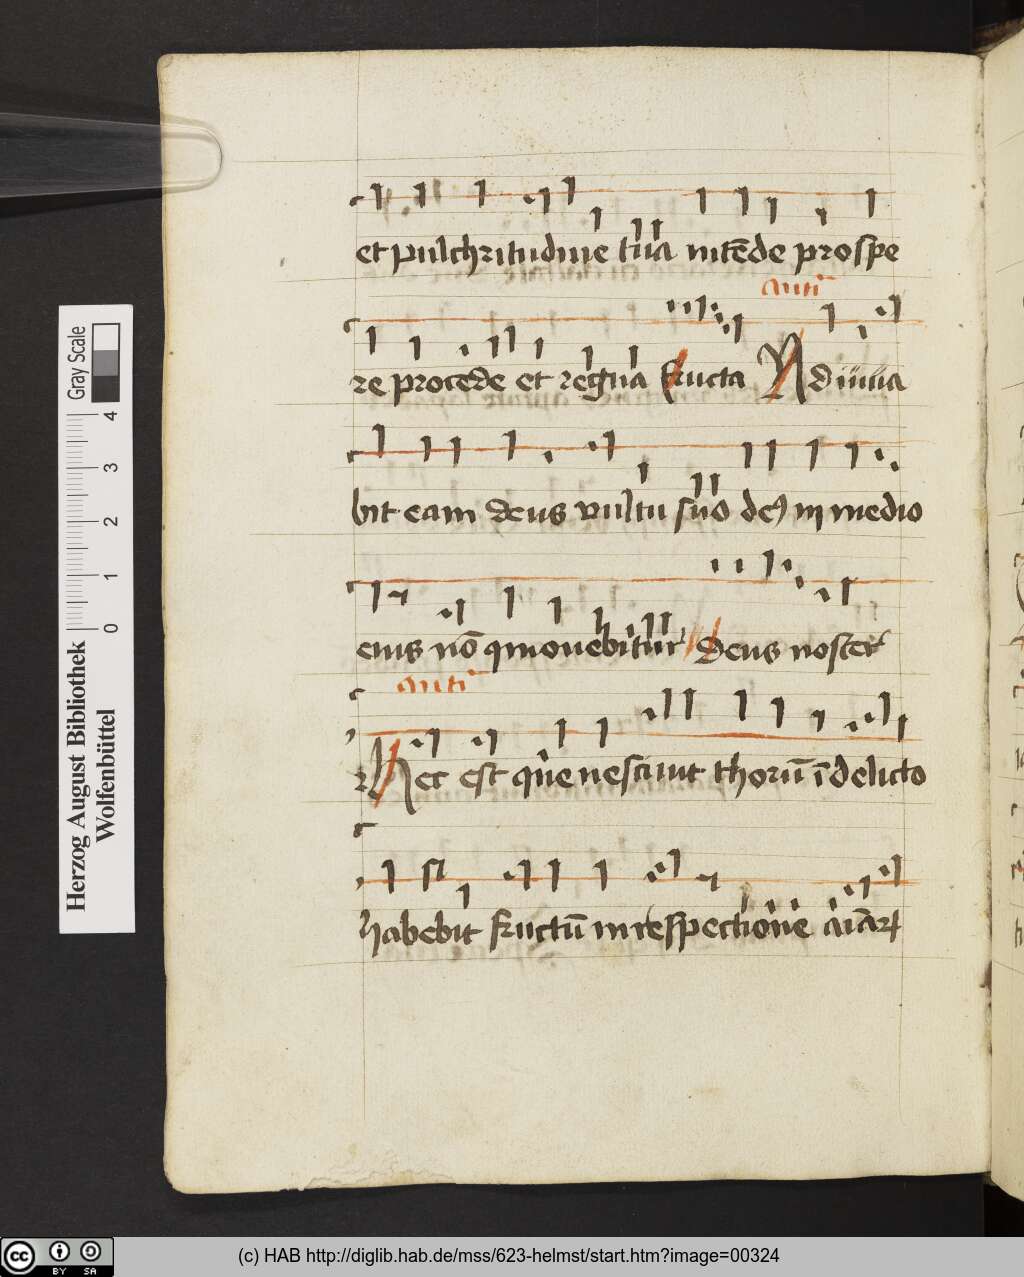 et pulchritudine tua intēde prospe
Anti
re procede et regna fructa Adiuua
bit eam deus vultu suo deꝰ in medio
eius nō qmouebitur Deus noster
Anti
Hec est que nesciuit thorū ī delicto
habebit fructū in respectione aīarꝝ
Gray Scale
4
3
2
1
0
Herzog August Bibliothek
Wolfenbüttel
cc BY SA
(c) HAB http://diglib.hab.de/mss/623-helmst/start.htm?image=00324